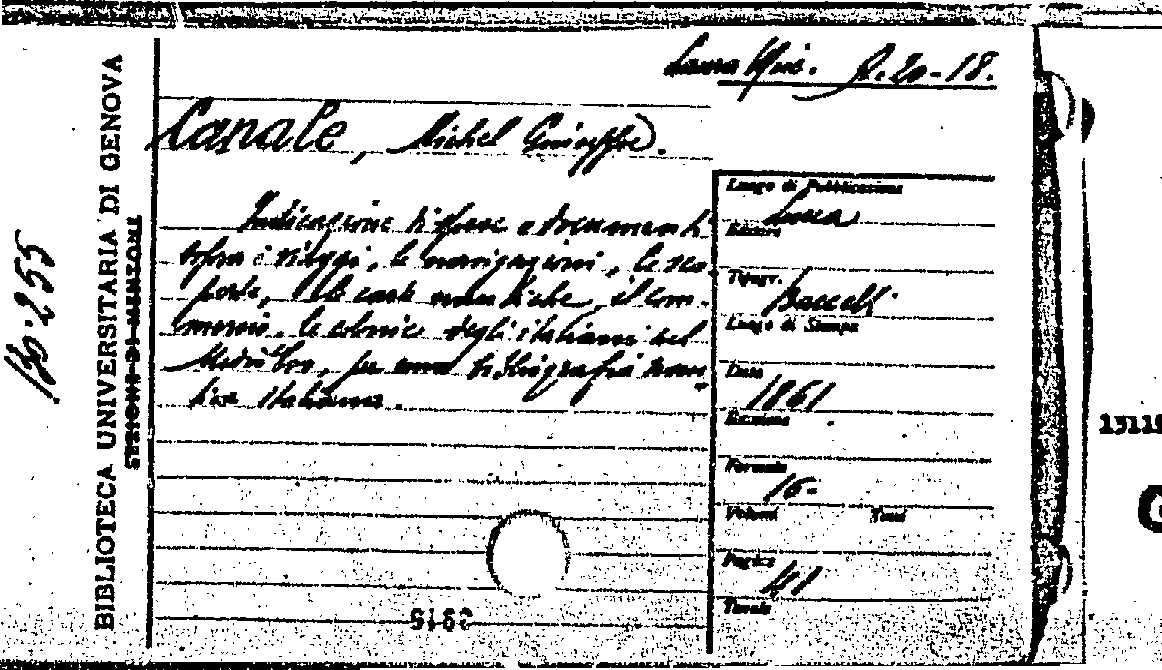 8.20-18.
Canale, Michel Giuseppe.
Indicazione di opere e documenti
sopra i viaggi, le navigazioni, le sco-
perte, le carte nautiche, il com-
mercio, le colonie degli italiani nel
Medio Evo, per una bibliografia nau-
tica italiana.
Luogo di Pubblicazione
Lucca
Editore
Tipogr.
Luogo di Stampa
Data
1861
Edizione
Formato
16-
Volumi Tomi
Pagine
41
Tavole
BIBLIOTECA UNIVERSITARIA DI GENOVA
SEZIONE DI MENTONE
13119